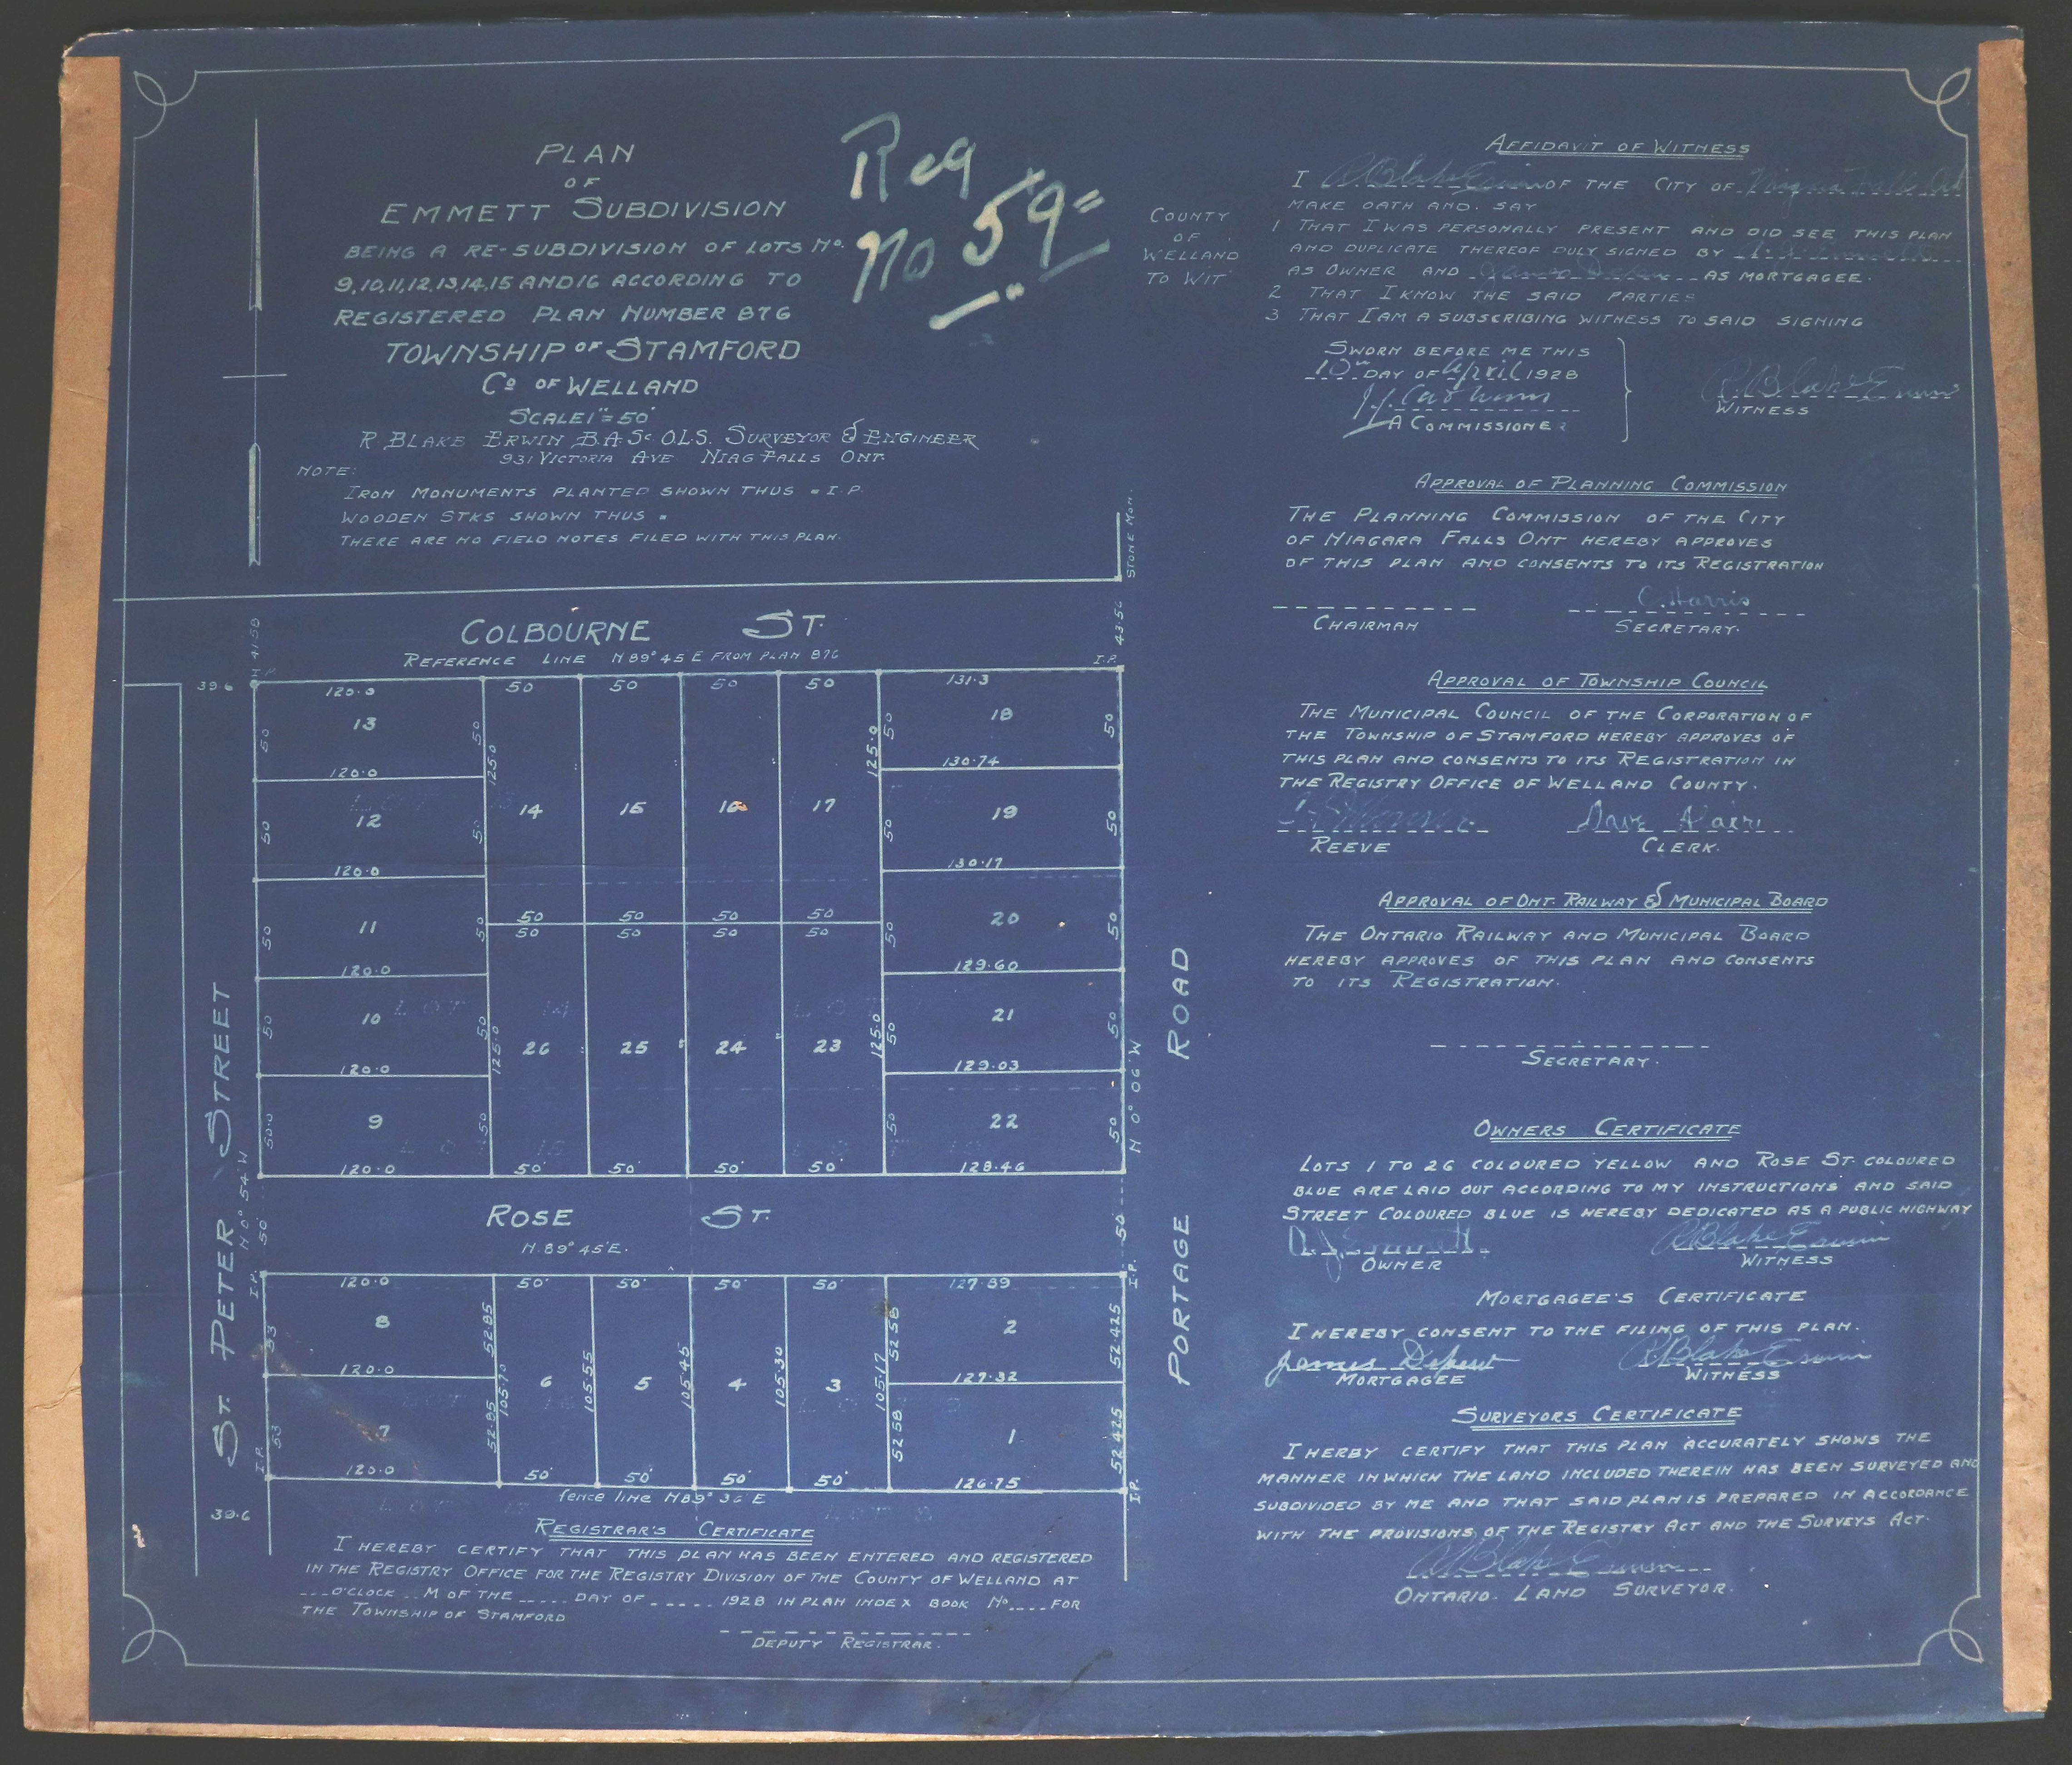 PLAN
OF
EMMETT SUBDIVISION
BEING A RE-SUBDIVISION OF LOTS No.
9,10,11,12,13,14,15 AND 16 ACCORDING TO
REGISTERED PLAN NUMBER 876
TOWNSHIP OF STAMFORD
Co OF WELLAND
SCALE 1"=50'
R BLAKE ERWIN B.A.Sc. O.L.S. SURVEYOR & ENGINEER
931 VICTORIA AVE NIAG FALLS ONT.
NOTE:
IRON MONUMENTS PLANTED SHOWN THUS I.P.
WOODEN STKS SHOWN THUS
THERE ARE NO FIELD NOTES FILED WITH THIS PLAN.
Reg
No 59
STONE MON.
COLBOURNE ST.
REFERENCE LINE N89°45'E FROM PLAN 876
41.58
43.56
I.P.
I.P.
39.6
120.0 50 50 50 50 131.3
13 18
50 50 50 50
120.0 125.0 125.0 130.74
12 14 15 16 17 19
50 50 50 50
120.0 130.17
11 50 50 50 50 20
50 50 50 50 50 50 50 50
120.0 129.60
10 21
50 50 50 50
120.0 125.0 26 25 24 23 125.0 129.03
9 22
50.0 50 50 50
120.0 50' 50' 50' 50' 128.46
ST. PETER STREET
N 0° 54' W
PORTAGE ROAD
N 0° 06' W
ROSE ST.
N.89° 45'E.
50'
50'
I.P.
I.P.
120.0 50' 50' 50' 50' 127.89
8 2
53 52.85 52.58 52.425
120.0 127.32
6 5 4 3
105.70 105.55 105.45 105.30 105.17
7 1
53 52.85 52.58 52.425
120.0 50' 50' 50' 50' 126.75
I.P.
I.P.
fence line N89° 36' E
39.6
REGISTRAR'S CERTIFICATE
I HEREBY CERTIFY THAT THIS PLAN HAS BEEN ENTERED AND REGISTERED
IN THE REGISTRY OFFICE FOR THE REGISTRY DIVISION OF THE COUNTY OF WELLAND AT
O'CLOCK M OF THE DAY OF 1928 IN PLAN INDEX BOOK No. FOR
THE TOWNSHIP OF STAMFORD
DEPUTY REGISTRAR.
COUNTY
OF
WELLAND
TO WIT
AFFIDAVIT OF WITNESS
I R. Blake Erwin OF THE CITY OF Niagara Falls Ont
MAKE OATH AND SAY
1 THAT I WAS PERSONALLY PRESENT AND DID SEE THIS PLAN
AND DUPLICATE THEREOF DULY SIGNED BY
AS OWNER AND James AS MORTGAGEE.
2 THAT I KNOW THE SAID PARTIES
3 THAT I AM A SUBSCRIBING WITNESS TO SAID SIGNING
SWORN BEFORE ME THIS
10th DAY OF April 1928
A COMMISSIONER
R. Blake Erwin
WITNESS
APPROVAL OF PLANNING COMMISSION
THE PLANNING COMMISSION OF THE CITY
OF NIAGARA FALLS ONT HEREBY APPROVES
OF THIS PLAN AND CONSENTS TO ITS REGISTRATION
C. Harris
CHAIRMAN SECRETARY.
APPROVAL OF TOWNSHIP COUNCIL
THE MUNICIPAL COUNCIL OF THE CORPORATION OF
THE TOWNSHIP OF STAMFORD HEREBY APPROVES OF
THIS PLAN AND CONSENTS TO ITS REGISTRATION IN
THE REGISTRY OFFICE OF WELLAND COUNTY.
Dave
REEVE CLERK.
APPROVAL OF ONT. RAILWAY & MUNICIPAL BOARD
THE ONTARIO RAILWAY AND MUNICIPAL BOARD
HEREBY APPROVES OF THIS PLAN AND CONSENTS
TO ITS REGISTRATION.
SECRETARY.
OWNERS CERTIFICATE
LOTS 1 TO 26 COLOURED YELLOW AND ROSE ST. COLOURED
BLUE ARE LAID OUT ACCORDING TO MY INSTRUCTIONS AND SAID
STREET COLOURED BLUE IS HEREBY DEDICATED AS A PUBLIC HIGHWAY
R. Blake Erwin
OWNER WITNESS
MORTGAGEE'S CERTIFICATE
I HEREBY CONSENT TO THE FILING OF THIS PLAN.
James R. Blake Erwin
MORTGAGEE WITNESS
SURVEYORS CERTIFICATE
I HERBY CERTIFY THAT THIS PLAN ACCURATELY SHOWS THE
MANNER IN WHICH THE LAND INCLUDED THEREIN HAS BEEN SURVEYED AND
SUBDIVIDED BY ME AND THAT SAID PLAN IS PREPARED IN ACCORDANCE
WITH THE PROVISIONS OF THE REGISTRY ACT AND THE SURVEYS ACT.
R. Blake Erwin
ONTARIO LAND SURVEYOR.